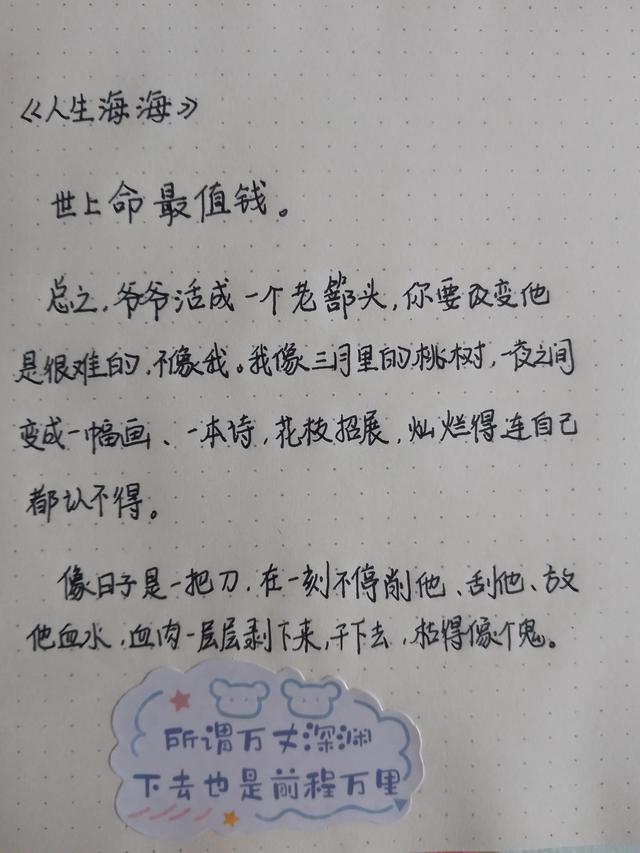 《人生海海》
世上命最值钱。
总之,爷爷活成一个老篰头,你要改变他
是很难的,不像我。我像三月里的桃树,一夜之间
变成一幅画、一本诗,花枝招展,灿烂得连自己
都认不得。
像日子是一把刀,在一刻不停削他、刮他、放
他血水,血肉一层层剥下来,干下去,枯得像个鬼。
所谓万丈深渊
下去也是前程万里